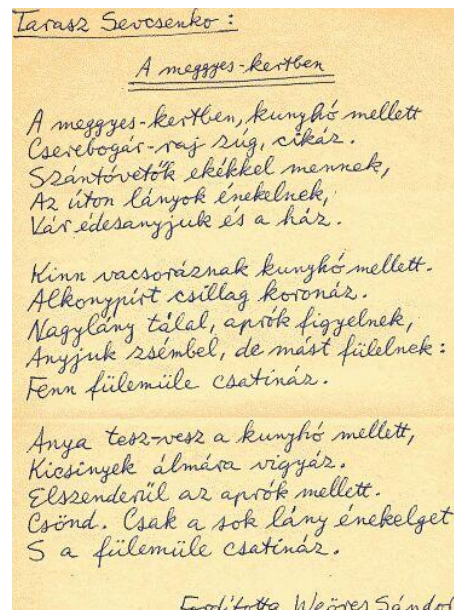 Tarasz Sevcsenko :
A meggyes-kertben
A meggyes-kertben, kunyhó mellett
Cserebogár-raj zúg, cikáz.
Szántóvetők ekékkel mennek,
Az úton lányok énekelnek,
Vár édesanyjuk és a ház.
Kinn vacsoráznak kunyhó mellett.
Alkonypírt csillag koronáz.
Nagylány tálal, aprók figyelnek,
Anyjuk zsémbel, de mást fülelnek :
Fenn fülemüle csatináz.
Anya tesz-vesz a kunyhó mellett,
Kicsinyek álmára vigyáz.
Elszenderül az aprók mellett.
Csönd. Csak a sok lány énekelget
S a fülemüle csatináz.
Fordította Weöres Sándor